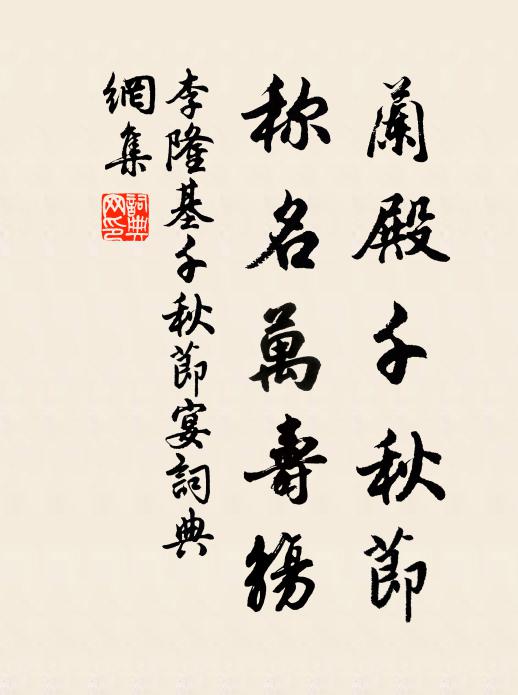 蘭殿千秋節
称名萬壽觴
李隆基千秋節宴詞典
網集
詞典
网印